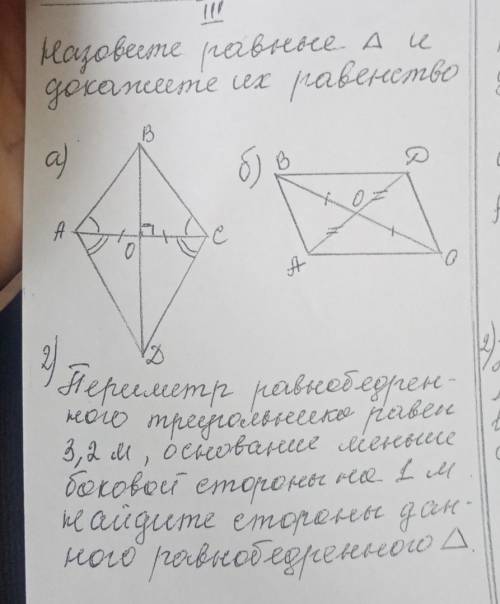 III
Назовите равные Δ и
докажите их равенство
а)
B
A
O
C
D
б)
B
D
O
A
C
2)
Периметр равнобедрен-
ного треугольника равен
3,2 м, основание меньше
боковой стороны на 1 м.
Найдите стороны дан-
ного равнобедренного Δ.
2)